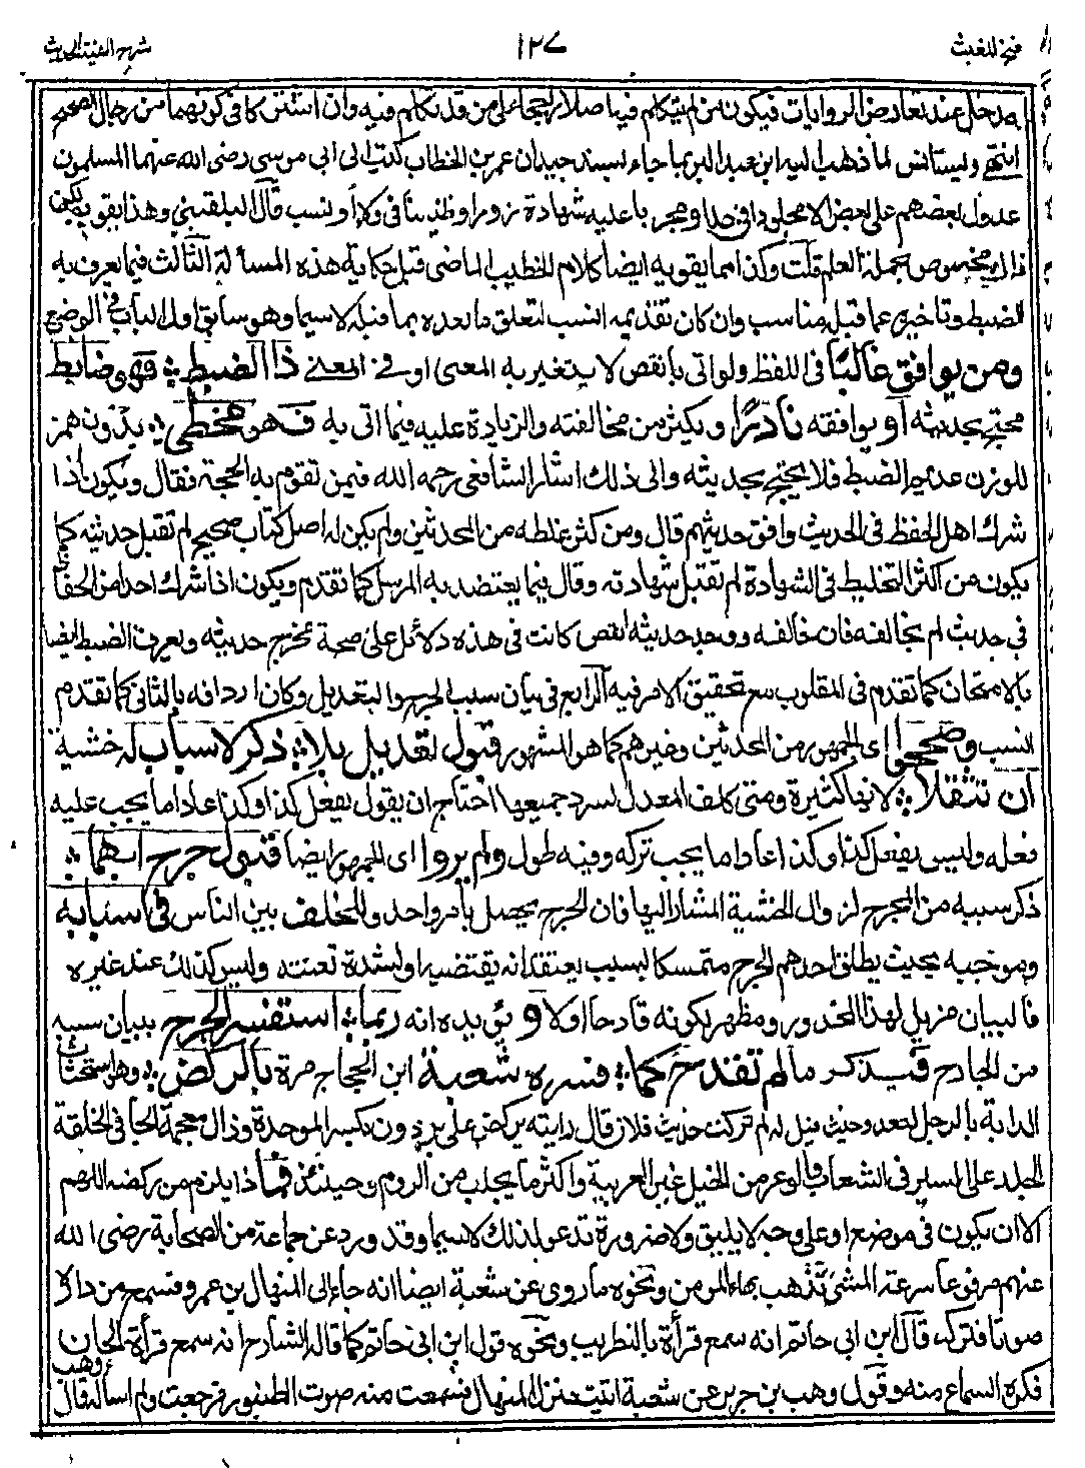 فتح المغيث ١٢٧ شرح الفية الحديث
مدخل عند تعارض الروايات فيكون من لم يتكلم فيه اصلا راجحا على من قد تكلم فيه وان اشتركا في كونهما من رجال الصحيح
انتهى وليستانس لما ذهب اليه ابن عبد البر بما جاء بسند جيد ان عمر بن الخطاب كتب الى ابي موسى رضي الله عنهما المسلمون
عدول بعضهم على بعض الا مجلودا في حد او مجربا عليه شهادة زور او ظنينا في ولاء او نسب قال البلقيني وهذا يقويه لكن
ذاك مخصوص بحملة العلم قلت وكذا مما يقويه ايضا كلام الخطيب الماضي قبل حكاية هذه المسألة الثالث فيما يعرف به
الضبط وتاخيره عما قبله مناسب وان كان تقديمه انسب لتعلق ما بعده بما قبله لا سيما وهو سابق اول الباب في الوضع
ومن يوافق غالبا في اللفظ ولو اتى بانقص لا يتغير به المعنى او في المعنى ذا الضبط ؛ فهو ضابط
محتج بحديثه او يوافقه نادرا ويكثر من مخالفته والزيادة عليه فيما اتى به فهو مخطي ؛ بدون همز
للوزن عديم الضبط فلا يحتج بحديثه والى ذلك اشار الشافعي رحمه الله فيمن تقوم به الحجة فقال ويكون اذا
شرك اهل الحفظ في الحديث وافق حديثهم قال ومن كثر غلطه من المحدثين ولم يكن له اصل كتاب صحيح لم تقبل حديثه كما
يكون من اكثر التخليط في الشهادة لم تقبل شهادته وقال فيما يعتضد به المرسل كما تقدم ويكون اذا شرك احدا من الحفاظ
في حديث لم يخالفه فان خالفه ووجد حديثه انقص كانت في هذه دلائل على صحة مخرج حديثه ويعرف الضبط ايضا
بالامتحان كما تقدم في المقلوب مع تحقيق الامر فيه الرابع في بيان سبب الجرح والتعديل وكان اردافه بالثاني كما تقدم
انسب وصححوا اي الجمهور من المحدثين وغيرهم كما هو المشهور قبول تعديل بلا ؛ ذكر لاسباب له خشية
ان تثقلا ؛ لانها كثيرة ومتى كلف المعدل لسرد جميعها احتاج ان يقول يفعل كذا وكذا عادا ما يجب عليه
فعله وليس يفعل كذا وكذا عادا ما يجب تركه وفيه طول ولم يروا اي الجمهور ايضا قبول جرح ابهما ؛
ذكر سببه من المجرح لزوال الخشية المشار اليها فان الجرح يحصل بامر واحد وللخلف بين الناس في اسبابه
وموجبه بحيث يطلق احدهم الجرح متمسكا بسبب يعتقد انه يقتضيه او لشدة تعنته وليس كذلك عند غيره
فالبيان مزيل لهذا المحذور ومظهر لكونه قادحا او لا ويؤيده انه ربما ؛ استفسر الجرح ببيان سببه
من الجارح فيذكر ما لم يقدح كما ؛ فسره شعبة ابن الحجاج مرة بالركض ؛ وهو استحثاث
الدابة بالرجل لتعدو حيث قيل له لم تركت حديث فلان قال رايته يركض على برذون بكسر الموحدة وذال معجمة الجافي الخلقة
الجلد على السير في الشعاب والوعر من الخيل غير العربية واكثر ما يجلب من الروم وحينئذ فماذا يلزم من ركضه اللهم
الا ان يكون في موضع او على وجه لا يليق ولا ضرورة تدعو لذلك لا سيما وقد ورد عن جماعة من الصحابة رضي الله
عنهم مرفوعا سرعة المشي تذهب بهاء المومن ونحوه ما روي عن شعبة ايضا انه جاء الى المنهال بن عمرو فسمع من داره
صوتا فتركه قال ابن ابي حاتم انه سمع قرأة بالتطريب ونحوه قول ابن ابي حاتم كما قاله الشارح انه سمع قرأة الحان
فكره السماع منه وقول وهب بن جرير عن شعبة اتيت منزل المنهال فسمعت منه صوت الطنبور فرجعت ولم اساله قال وهب